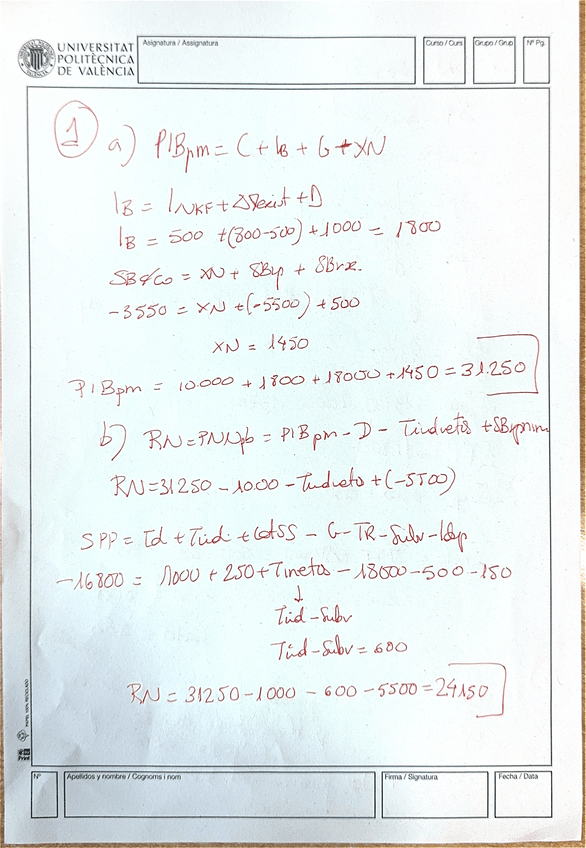 UNIVERSITAT
POLITÈCNICA
DE VALÈNCIA
Asignatura / Assignatura
Curso / Curs
Grupo / Grup
Nº Pg.
1 a) PIBpm = C + IB + G + XN
IB = INKF + Δexist + D
IB = 500 + (800-500) + 1000 = 1800
SB = XN + SBrp + SBrx.
-3550 = XN + (-5500) + 500
XN = 1450
PIBpm = 10.000 + 1800 + 18000 + 1450 = 31.250
b) RN = PNNpb = PIBpm - D - Tindirectos + SBrpmm
RN = 31250 - 1000 - Tindirecto + (-5500)
SPP = Td + Tind + CotSS - G - TR - Subv - Idep
-16800 = 1000 + 250 + Tinetos - 18000 - 500 - 150
↓
Tind - Subv
Tind - Subv = 600
RN = 31250 - 1000 - 600 - 5500 = 24150
PAPEL 100% RECICLADO
Print
Nº
Apellidos y nombre / Cognoms i nom
Firma / Signatura
Fecha / Data